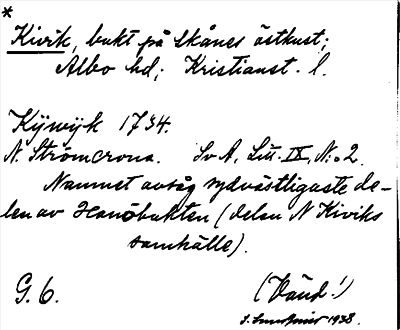 *
Kivik, bukt på Skånes östkust;
Albo hd; Kristianst. l.
Kÿwÿk 1734.
N. Strömcrona. Sv A, Litt. IX, N:o 2.
Namnet avsåg sydvästligaste de-
len av Hanöbukten (delen N Kiviks
samhälle).
G. 6. (Vänd!)
1938.